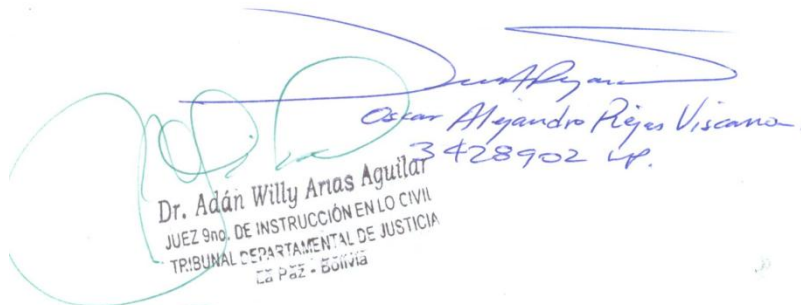 Oscar Alejandro Rejas Viscarra
3428902 LP.
Dr. Adán Willy Arias Aguilar
JUEZ 9no. DE INSTRUCCIÓN EN LO CIVIL
TRIBUNAL DEPARTAMENTAL DE JUSTICIA
La Paz - Bolivia